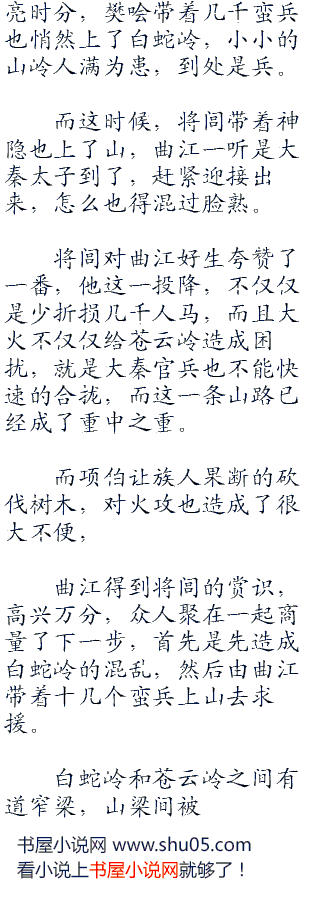 亮时分，樊哙带着几千蛮兵
也悄然上了白蛇岭，小小的
山岭人满为患，到处是兵。
而这时候，将闾带着神
隐也上了山，曲江一听是大
秦太子到了，赶紧迎接出
来，怎么也得混过脸熟。
将闾对曲江好生夸赞了
一番，他这一投降，不仅仅
是少折损几千人马，而且大
火不仅仅给苍云岭造成困
扰，就是大秦官兵也不能快
速的合拢，而这一条山路已
经成了重中之重。
而项伯让族人果断的砍
伐树木，对火攻也造成了很
大不便，
曲江得到将闾的赏识，
高兴万分，众人聚在一起商
量了下一步，首先是先造成
白蛇岭的混乱，然后由曲江
带着十几个蛮兵上山去求
援。
白蛇岭和苍云岭之间有
道窄梁，山梁间被
书屋小说网 www.shu05.com
看小说上书屋小说网就够了！